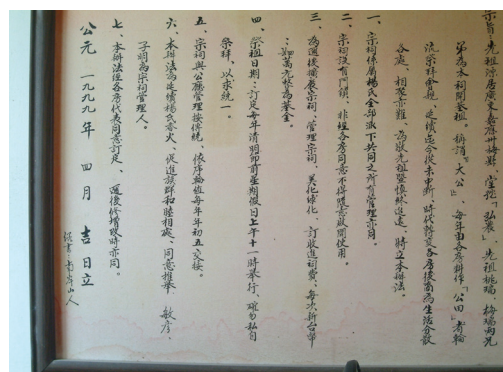 宗旨先祖源居廣東嘉應州梅縣、堂號「弘農」、先祖桃瑞、梅瑞兩兄
弟為本祠開基祖。稱謂「大公」、每年由各房耕作「公田」者輪
流祭拜會親、延續迄今從未中斷、時代轉變各房後裔為生活食散
各處、相聚亦難、為敬先祖暨慎終追遠、特立本辦法。
一、宗祠係屬楊氏金邱派下共同之所有管理亦同。
二、宗祠設有門鎖、非經各房同意不得隨意啟開使用。
三、為邁後擴展宗祠、管理宗祠、美化綠化、訂收進祠費、每次新台幣
：：萬元整為基金。
四、祭祖日期：訂定每年清明節前星期假日上午十一時舉行、確勿私自
祭拜、以求統一。
五、宗祠與公廳管理按傳統、依序輪值每年年初五交接。
六、本辦法為延續楊氏香火、促進族群和睦相處、同意推舉 敏彥、
子明為宗祠管理人。
七、本辦法經各房代表同意訂定、邇後修增改時亦同。
公元 一九九九年 四月 吉日立